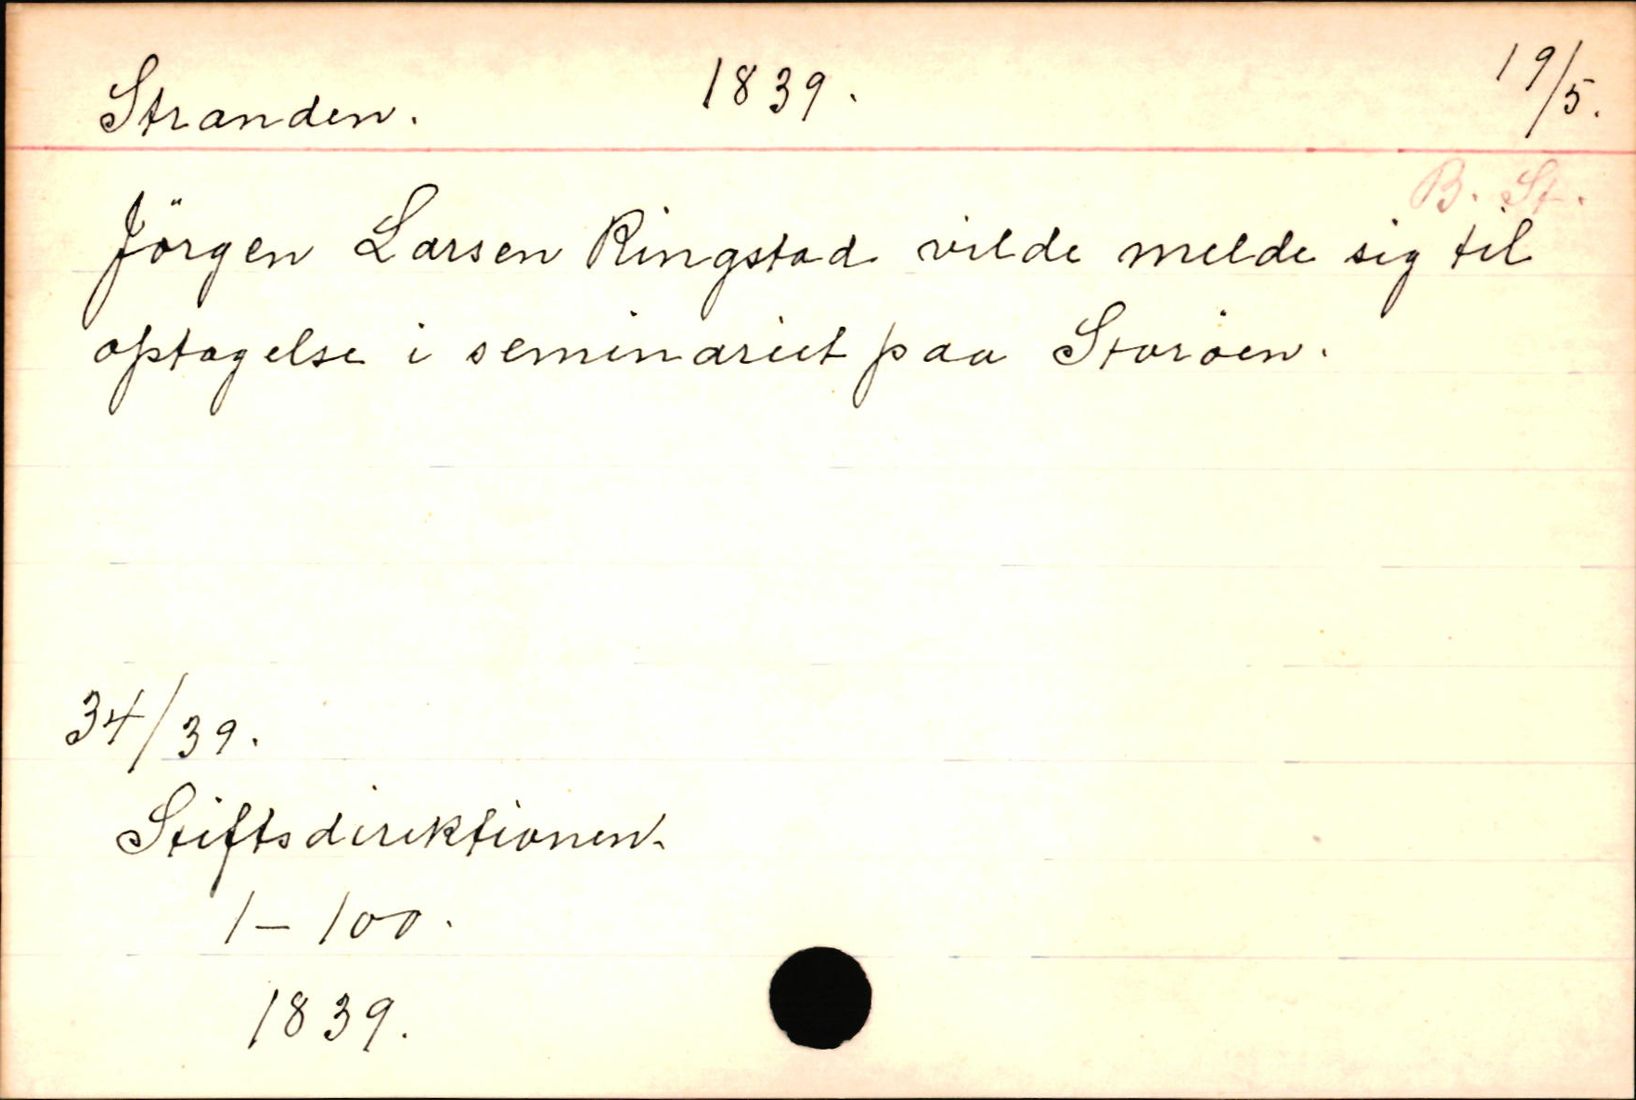 Stranden. 1839. 19/5.
B. St.
Jörgen Larsen Ringstad vilde melde sig til
optagelse i seminariet paa Storöen.
34/39.
Stiftsdirektionen.
1-100.
1839.